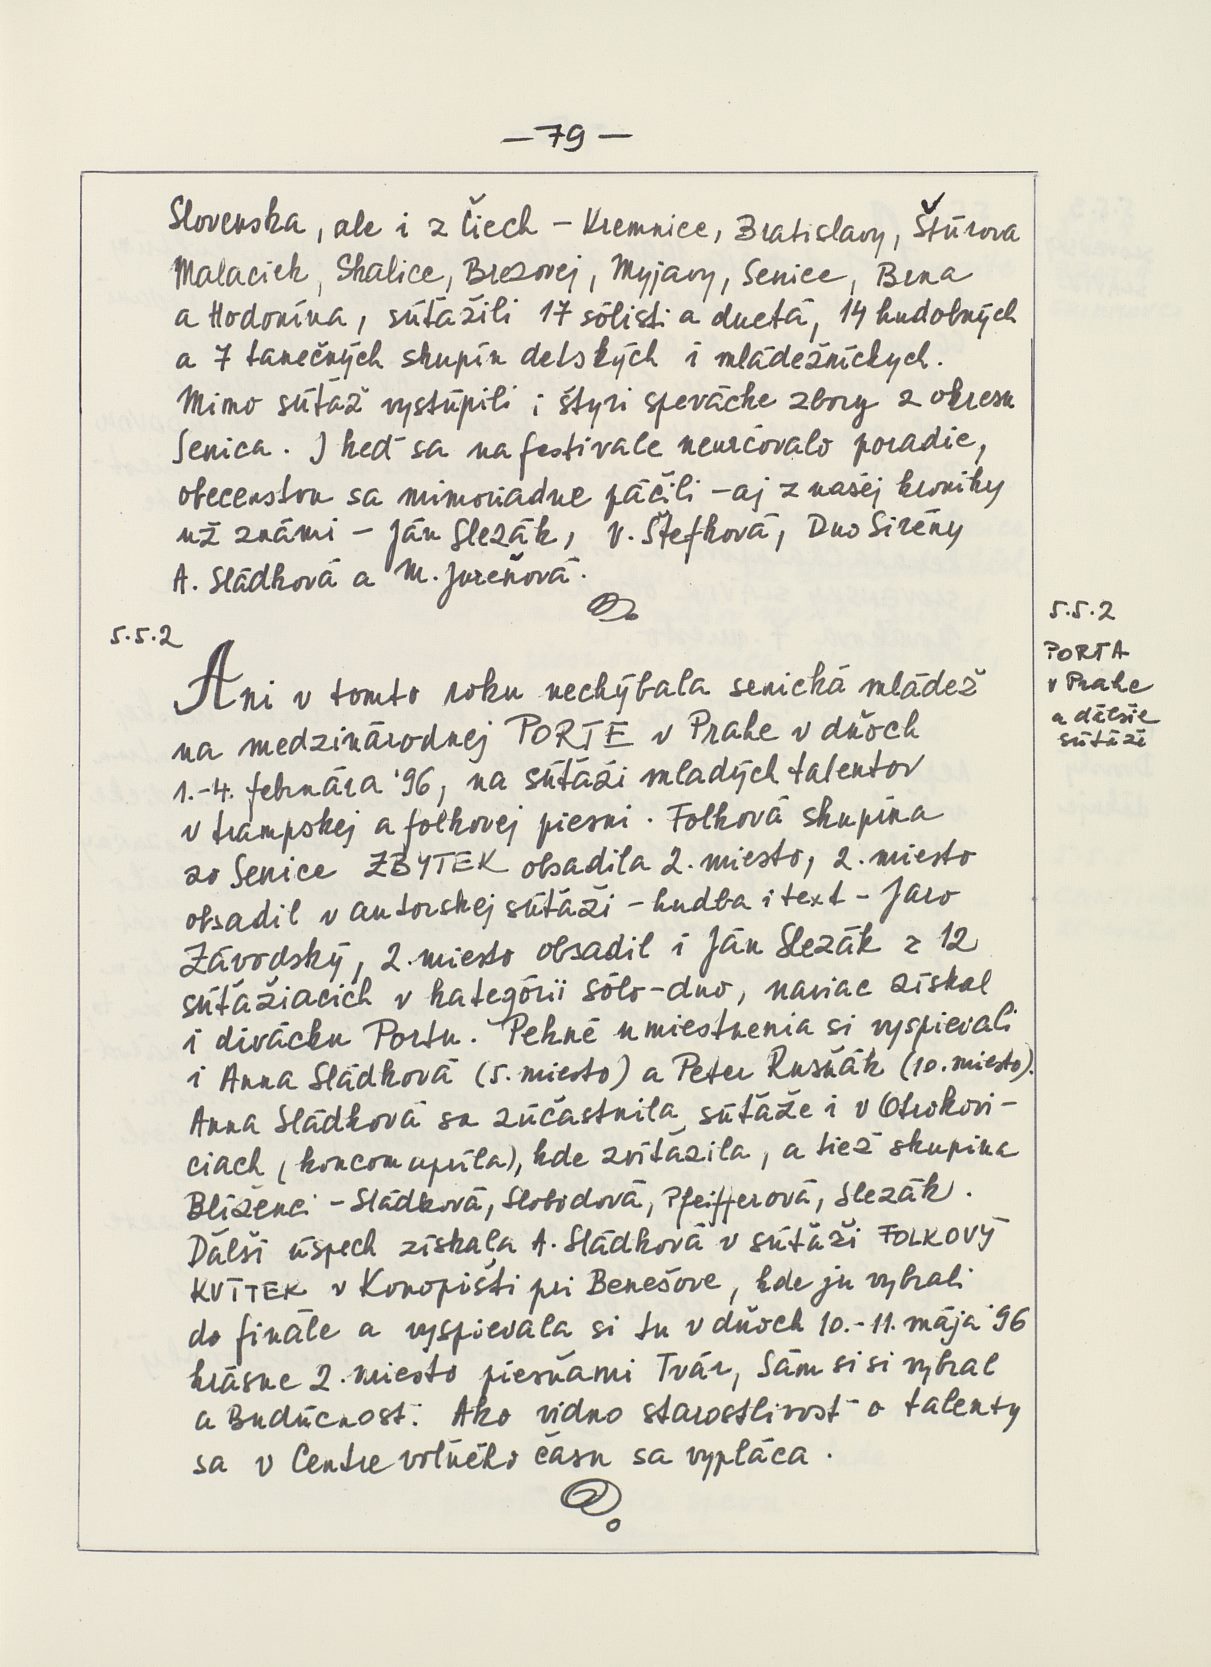 – 79 –
Slovenska, ale i z Čiech – Kremnice, Bratislavy, Štúrova
Malaciek, Skalice, Brezovej, Myjavy, Senice, Brna
a Hodonína, súťažili 17 sólisti a duetá, 14 hudobných
a 7 tanečných skupín detských i mládežníckych.
Mimo súťaž vystúpili i štyri spevácke zbory z okresu
Senica. I keď sa na festivale neurčovalo poradie,
obecenstvu sa mimoriadne páčili – aj z našej kroniky
už známi – Ján Slezák, V. Štefková, Duo Sirény
A. Sládková a M. Jureňová.
5.5.2
Ani v tomto roku nechýbala senická mládež
na medzinárodnej PORTE v Prahe v dňoch
1.-4. februára '96, na súťaži mladých talentov
v trampskej a folkovej piesni. Folková skupina
zo Senice ZBYTEK obsadila 2. miesto, 2. miesto
obsadil v autorskej súťaži – hudba i text – Jaro
Závodský, 2. miesto obsadil i Ján Slezák z 12
súťažiacich v kategórii sólo-duo, naviac získal
i divácku Portu. Pekné umiestnenia si vyspievali
i Anna Sládková (5. miesto) a Peter Rusňák (10. miesto).
Anna Sládková sa zúčastnila súťaže i v Otrokovi-
ciach (koncom apríla), kde zvíťazila, a tiež skupina
Blíženci – Sládková, Slobodová, Pfeifferová, Slezák.
Ďalší úspech získala A. Sládková v súťaži FOLKOVÝ
KVÍTEK v Konopišti pri Benešove, kde ju vybrali
do finále a vyspievala si tu v dňoch 10.-11. mája '96
krásne 2. miesto piesňami Tvár, Sám si si vybral
a Budúcnosť. Ako vidno starostlivosť o talenty
sa v Centre voľného času sa vypláca.
5.5.2
PORTA
v Prahe
a ďalšie
súťaže